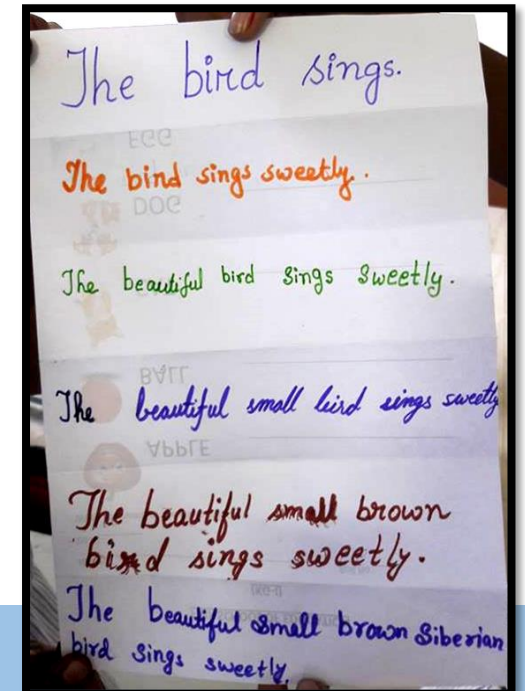 The bird sings.
EGG
The bind sings sweetly.
DOG
The beautiful bird Sings Sweetly.
BALL
The beautiful small bird sings sweetly
APPLE
The beautiful small brown
bird sings sweetly.
The beautiful small brown Siberian
bird Sings sweetly.